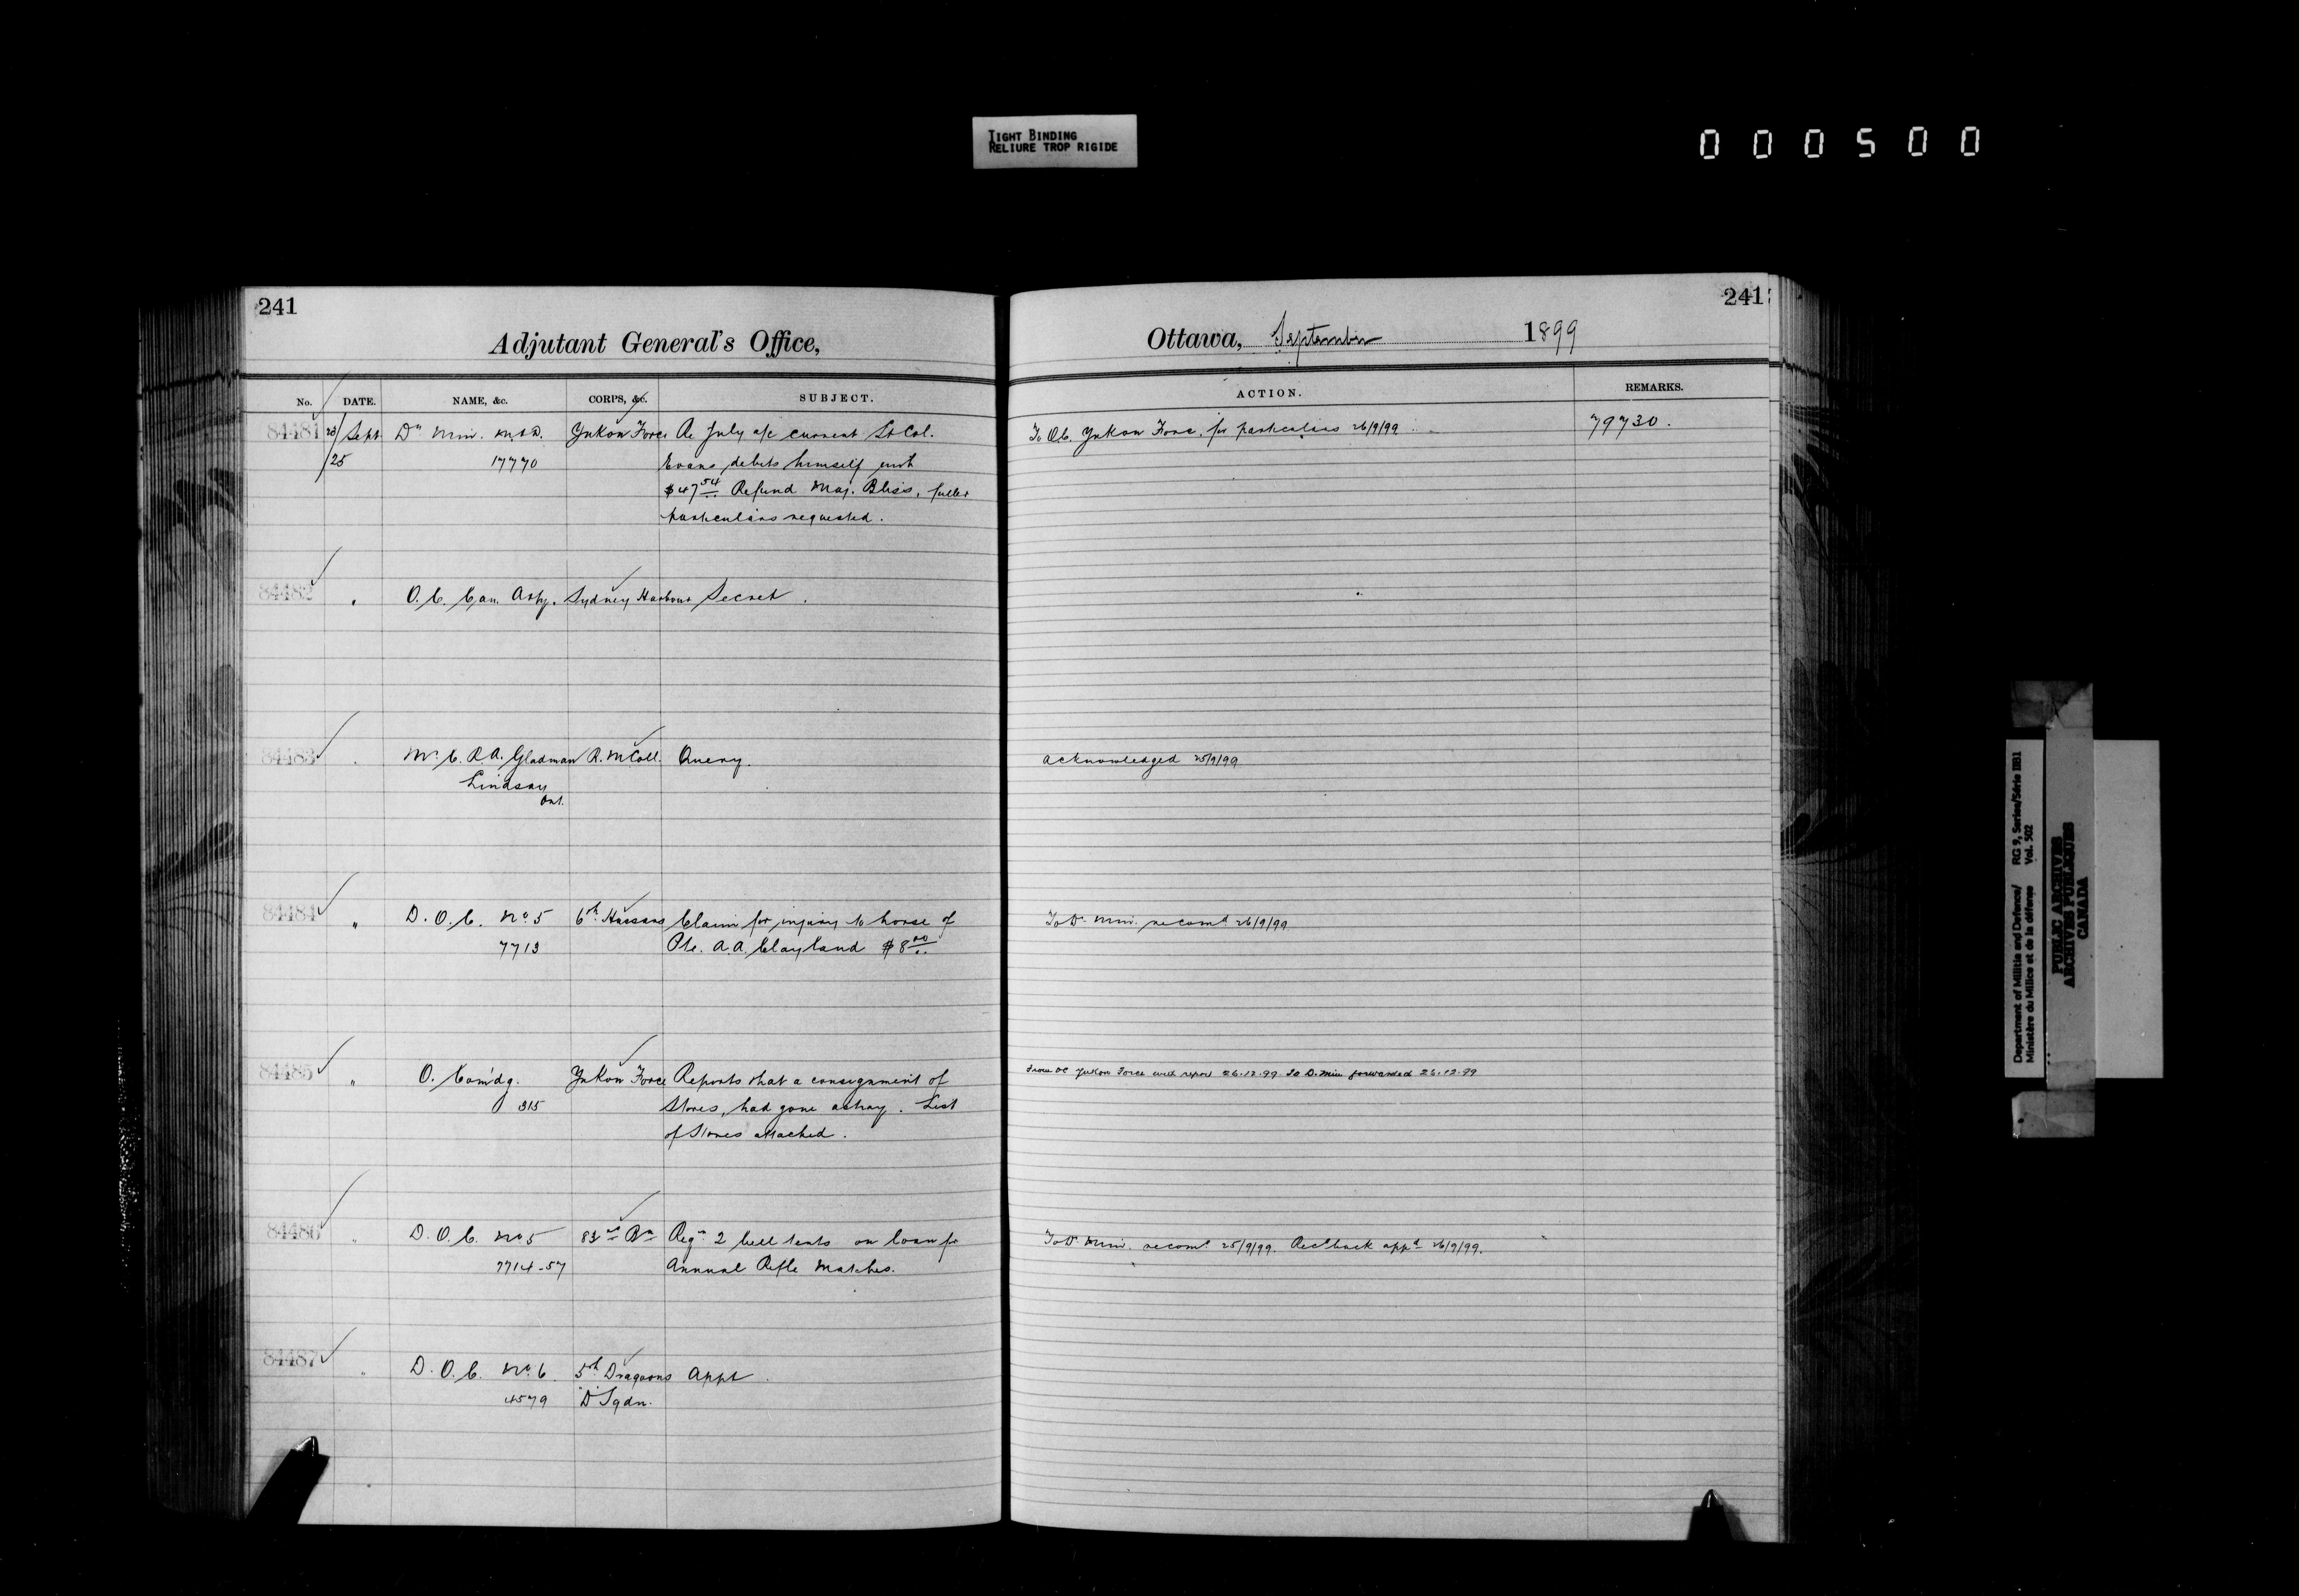 TIGHT BINDING
RELIURE TROP RIGIDE
000500
241
Adjutant General's Office,
No. DATE. NAME, &c. CORPS, &c. SUBJECT.
84481 23/Sept. Dy Min. M&D. Yukon Force Re July a/c current Lt Col.
/25 17770 Evans debits himself with
$47.54 Refund Maj. Bliss, fuller
particulars requested.
84482 " O.C. Can. Arty. Sydney Harbour Secret.
84483 " Mr C. R.A. Gladman R.M Coll. Query.
Lindsay
Ont.
84484 " D.O.C. No 5 6th Hussars Claim for injury to horse of
7713 Pte. A.A. Clayland $8.00
84485 " O. Com'dg. Yukon Force Reports that a consignment of
315 Stores, had gone astray. List
of Stores attached.
84486 " D.O.C. No 5 83rd Bn Reqn 2 bell tents on loan for
7714-57 Annual Rifle Matches.
84487 " D.O.C. No. 6 5th Dragoons Appt
4579 "D" Sqdn.
241
Ottawa, September 1899
ACTION. REMARKS.
To O.C. Yukon Force, for particulars 26/9/99 79730.
Acknowledged 25/9/99
To Dy. Min. recomd 26/9/99
From OC Yukon Force with report 26.12.99 To D. Min forwarded 26.12.99
To Dy. Min. recomd 25/9/99. Recd back appd 26/9/99.
Department of Militia and Defence/ RG 9, Series/Série IIB1
Ministère du Milice et de la défense Vol. 502
PUBLIC ARCHIVES
ARCHIVES PUBLIQUES
CANADA